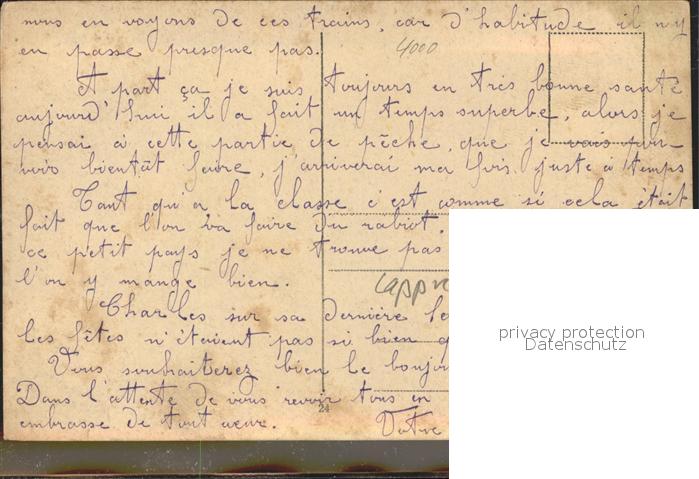 nous en voyons de ces trains, car d'habitude il n'y
en passe presque pas.
4000
A part ça je suis toujours en très bonne santé
aujourd'hui il a fait un temps superbe, alors je
pensai à cette partie de pêche, que je vais pou-
voir bientôt faire, j'arriverai ma fois juste à temps
Tant qu'a la classe c'est comme si cela était
fait que l'on va faire du rabiot.
ce petit pays je ne trouve pas
l'on y mange bien.
Charles sur sa dernière
les fêtes n'étaient pas si bien
Vous souhaiterez bien le bonjour
Dans l'attente de vous revoir tous en
embrasse de tout cœur.
Votre
24
privacy protection
Datenschutz